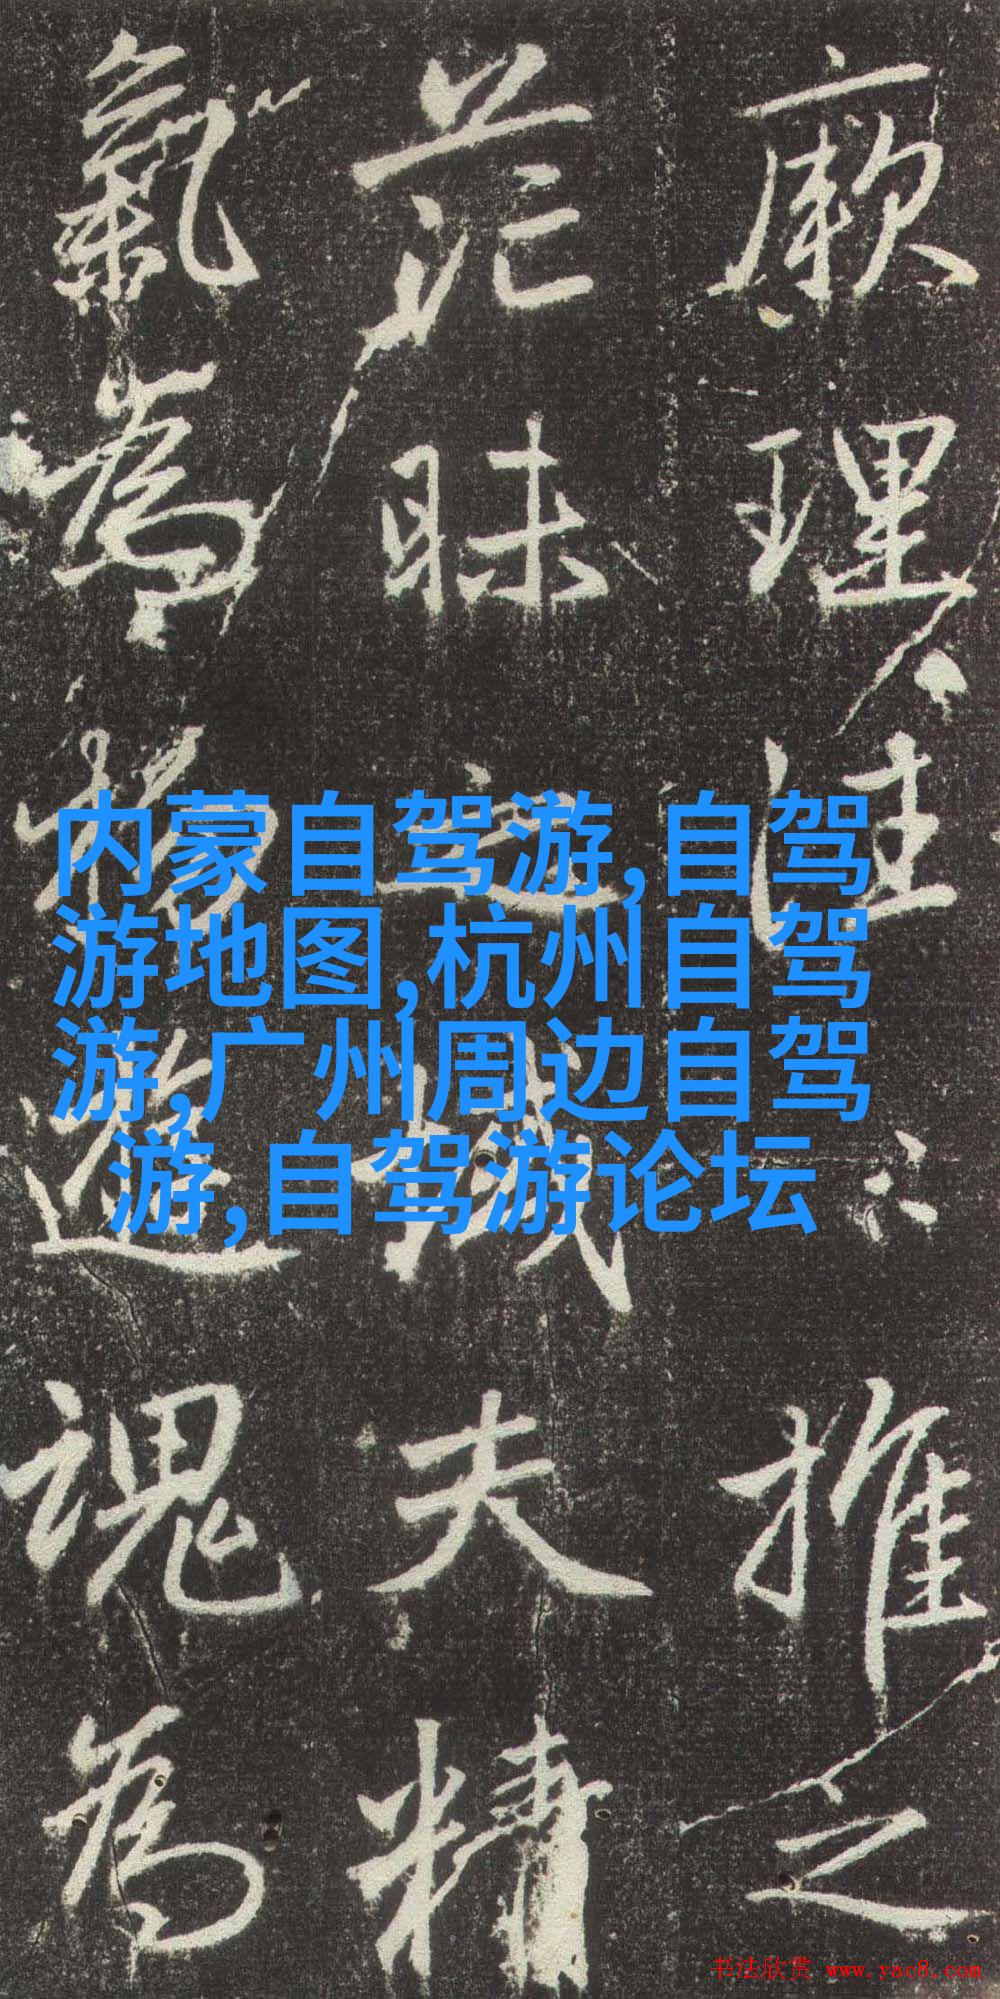 厥理推之
茫昧之域夫精
氣為物遊魂為
内蒙自驾游,自驾
游地图,杭州自驾
游,广州周边自驾
游,自驾游论坛
书法欣赏 www.yac8.com